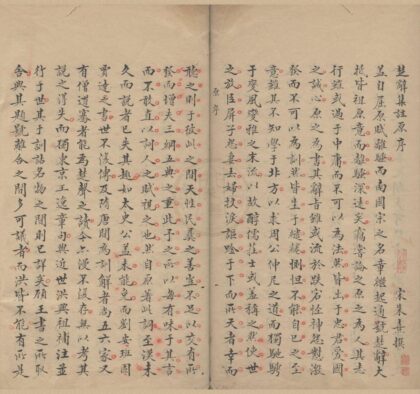 楚辭集註原序
宋朱熹撰
蓋自屈原賦離騷而南國宗之名章繼起通號楚辭大
抵皆祖原意而離騷深遠矣竊嘗論之原之為人其志
行雖或過于中庸而不可以為法然皆出于忠君愛國
之誠心原之為書其辭旨雖或流於跌宕怪神怨懟激
發而不可以為訓然皆生于繾綣惻怛不能自已之至
意雖其不知學于北方以求周公仲尼之道而獨馳騁
于變風變雅之末流以故醇儒莊士或羞稱之然使世
之放臣屏子怨妻去婦抆淚謳唫于下而所天者幸而
原序
聽之則于彼此之間天性民彝之善豈不足以交有所
發而增夫三綱五典之重此予之所以每有味于其言
而不敢直以詞人之賦視之也然自原著此詞至漢未
久而說者已失其趣如太史公蓋未能免而劉安班固
賈逵之書世不復傳及隋唐間為訓解者尚五六家又
有僧道騫者能為楚聲之讀今亦漫不復存無以考其
說之得失而獨東京王逸章句與近世洪興祖補註並
行于世其于訓詁名物之間則已詳矣顧王書之所取
舍與其題號離合之間多可議者而洪皆不能有所是